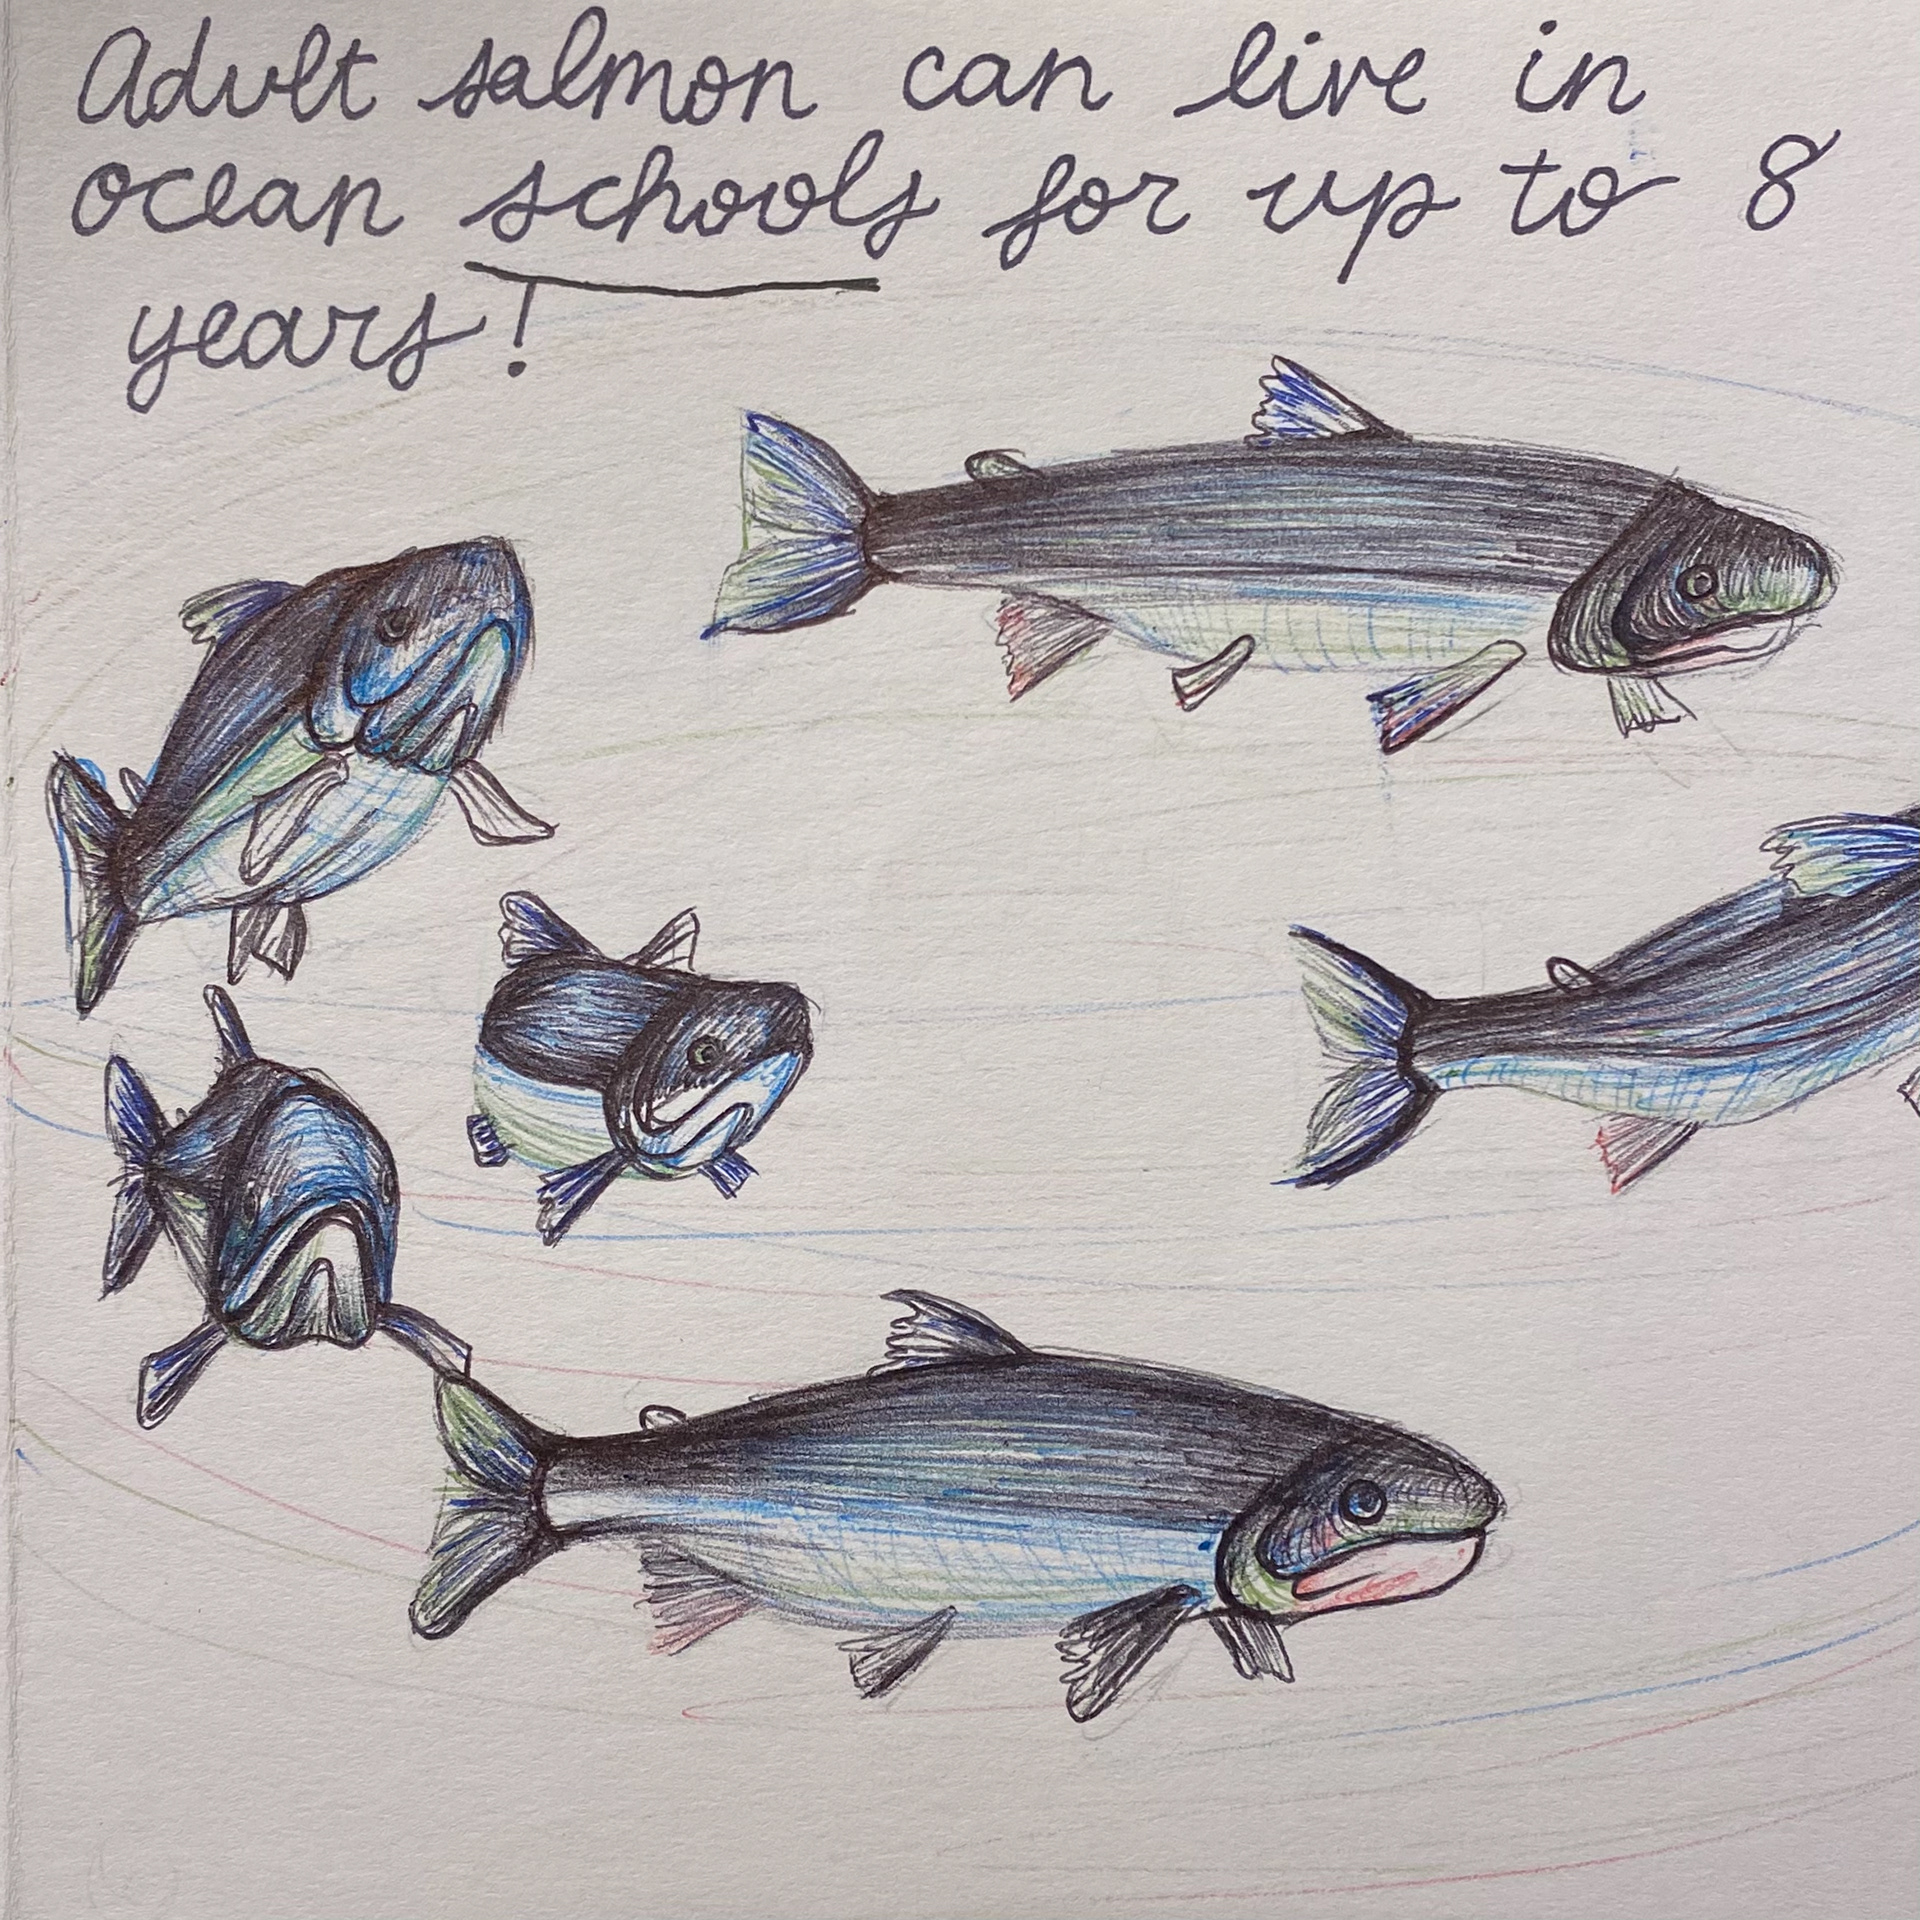 Adult salmon can live in
ocean schools for up to 8
years!